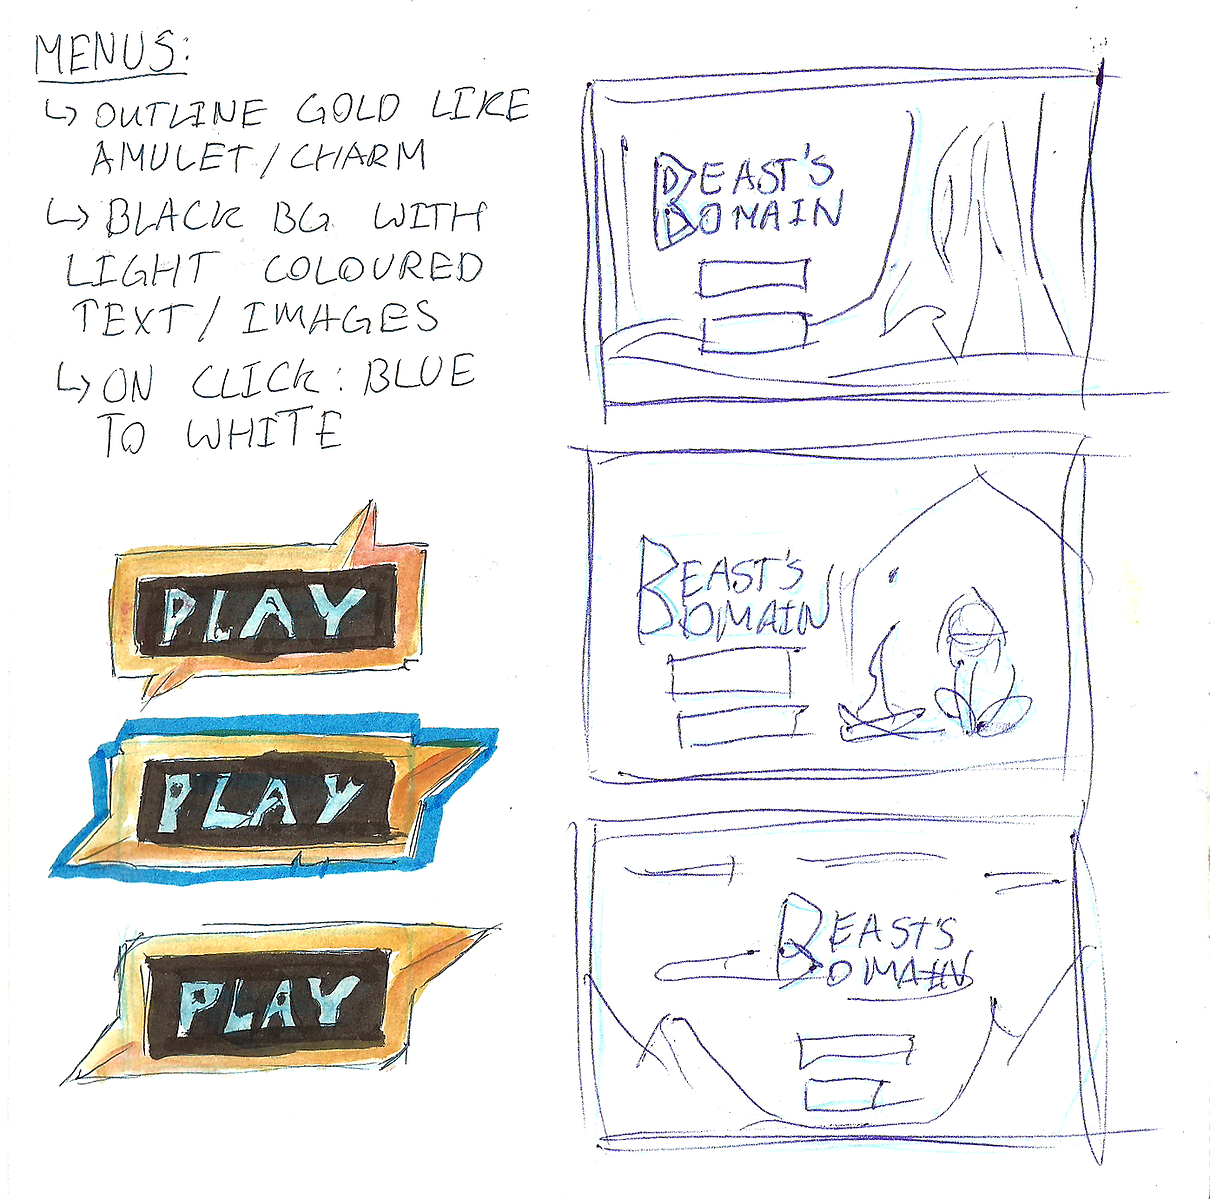 MENUS:
↳ OUTLINE GOLD LIKE
AMULET / CHARM
↳ BLACK BG WITH
LIGHT COLOURED
TEXT / IMAGES
↳ ON CLICK: BLUE
TO WHITE
PLAY
PLAY
PLAY
BEAST'S
DOMAIN
BEAST'S
DOMAIN
BEAST'S
DOMAIN